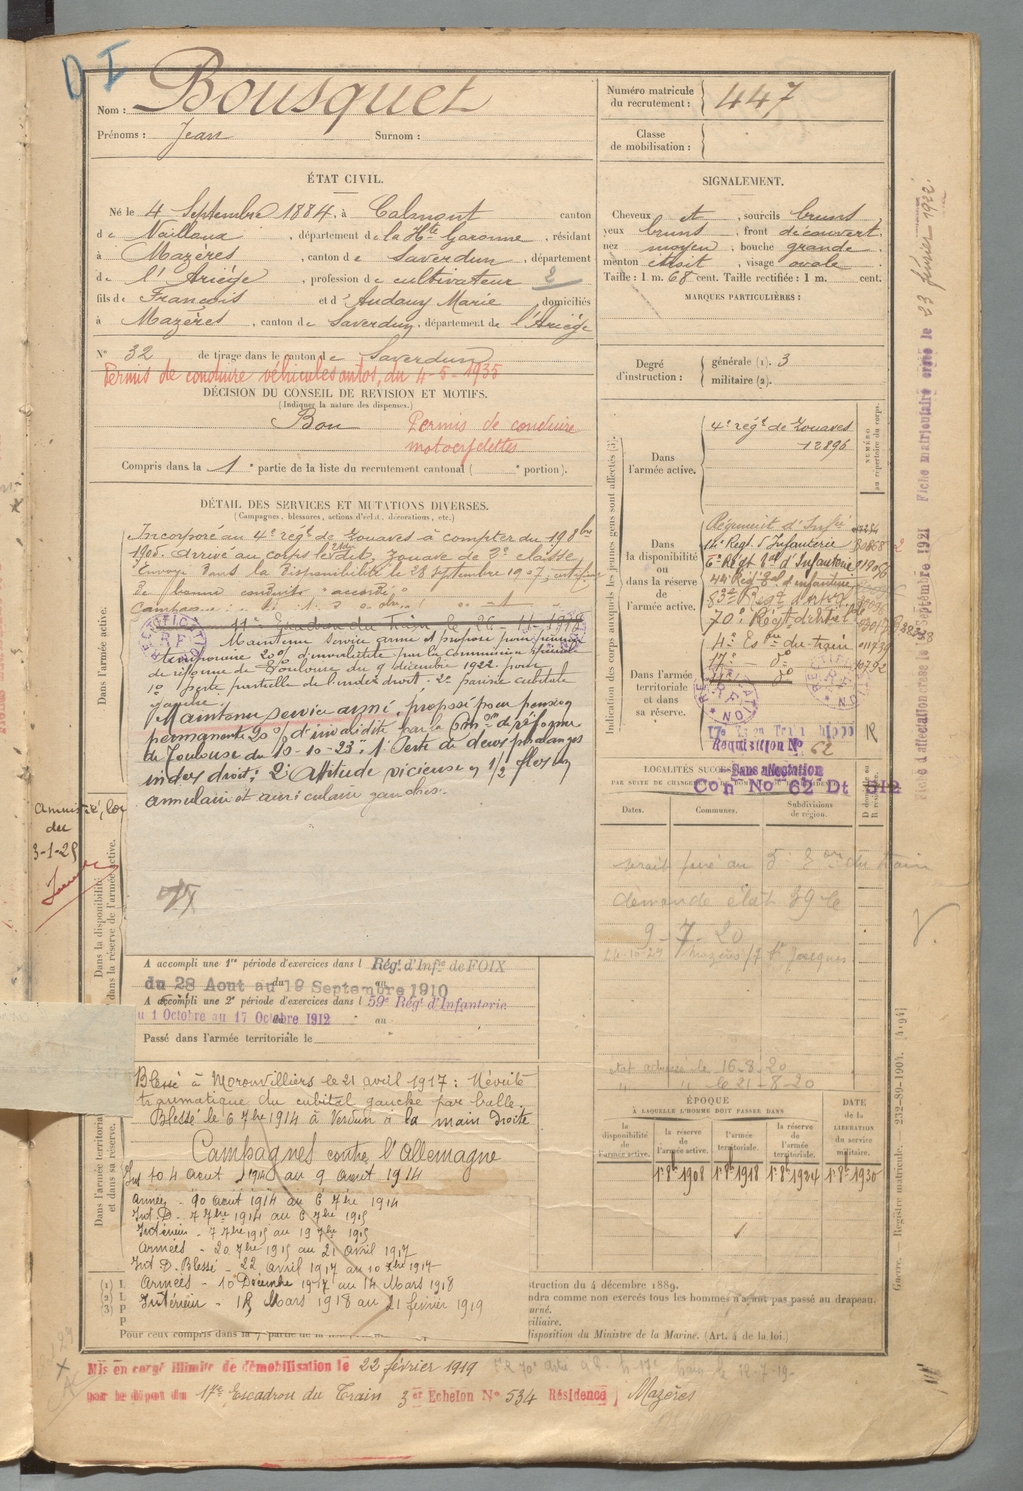 D I
Nom : Bousquet
Prénoms : Jean Surnom :
Numéro matricule du recrutement : 447
Classe de mobilisation :
ÉTAT CIVIL.
Né le 4 Septembre 1884, à Calmont canton
de Naillaux, département de la Hte Garonne, résidant
à Mazères, canton de Saverdun, département
de l'Ariège, profession de cultivateur 2
fils de François et d'Audouy Marie domiciliés
à Mazères, canton de Saverdun, département de l'Ariège
N° 32 de tirage dans le canton de Saverdun
Permis de conduire véhicules autos, du 4-5-1935
DÉCISION DU CONSEIL DE REVISION ET MOTIFS.
(Indiquer la nature des dispenses.)
Bon Permis de conduire
motocyclettes
Compris dans la 1e partie de la liste du recrutement cantonal ( e portion).
SIGNALEMENT.
Cheveux et, sourcils bruns
yeux bruns, front découvert,
nez moyen, bouche grande
menton étroit, visage ovale
Taille : 1 m. 68 cent. Taille rectifiée : 1 m. cent.
MARQUES PARTICULIÈRES :
Degré d'instruction : générale (1). 3
militaire (2).
DÉTAIL DES SERVICES ET MUTATIONS DIVERSES.
(Campagnes, blessures, actions d'éclat, décorations, etc.)
Incorporé au 4e régt de Zouaves à compter du 9 8bre
1905. Arrivé au corps le dit, zouave de 2e classe
Envoyé dans la disponibilité le 28 septembre 1907, certificat
de bonne conduite accordé
11e Escadron du train le
Maintenu service armé et proposé pour pension
temporaire 20% d'invalidité par la commission spéciale
de réforme de Toulouse du 9 décembre 1922 pour
1° perte partielle de l'index droit. 2° parésie cubitale
gauche.
Maintenu service armé, proposé pour pension
permanente 20% d'invalidité par la Con de réforme
de Toulouse du 10-10-23 : 1° Perte de deux phalanges
index droit; 2° Attitude vicieuse en 1/2 flexion
annulaire et auriculaire gauches.
Amnistié, loi
du
3-1-25
Dans l'armée active.
Dans la disponibilité ou dans la réserve de l'armée active.
Dans l'armée territoriale et dans sa réserve.
A accompli une 1re période d'exercices dans l Régt d'Infie de FOIX
du 28 Aout au 19 Septembre 1910
A accompli une 2e période d'exercices dans l 59e Régt d'Infanterie
du 1 Octobre au 17 Octobre 1912 au
Passé dans l'armée territoriale le
Blessé à Moronvilliers le 21 avril 1917 : Névrite
traumatique du cubital gauche par balle.
Blessé le 6 7bre 1914 à Verdun à la main Droite
Campagnes contre l'Allemagne
Int du 4 aout 1914 au 9 aout 1914
Armées - 10 aout 1914 au 6 7bre 1914
Int. D. - 7 7bre 1914 au 6 7bre 1915
Intérieur - 7 7bre 1915 au 19 7bre 1915
Armées - 20 7bre 1915 au 21 avril 1917
Int D. Blessé - 22 avril 1917 au 10 Xbre 1917
Armées - 10 Décembre 1917 au 14 Mars 1918
Intérieur - 15 Mars 1918 au 21 février 1919
Pour ceux compris dans la
Indication des corps auxquels les jeunes gens sont affectés (3).
NUMÉRO au répertoire du corps.
Dans l'armée active. 4e régt de Zouaves
12896
Dans la disponibilité ou dans la réserve de l'armée active.
Régiment d'Infie
14e Régt d'Infanterie
6e Régt d'Infanterie
44e Régt d'infanterie
83e Régt d'artie
70e Régt d'artie
Dans l'armée territoriale et dans sa réserve.
4e Esron du train
17e do
RECTIFICATION R.F.
Requisition N° 62
Sans affectation
Con No 62 Dt 512
LOCALITÉS
Dates. Communes. Subdivisions de région.
serait passé au 5e Eon du train
demande état 39 le
9-7-20
24-10-24 Mazères
état adressé le 16-8-20
" " le 21-8-20
ÉPOQUE
À LAQUELLE L'HOMME DOIT PASSER DANS
DATE de la LIBERATION du service militaire.
la disponibilité de l'armée active. la réserve de l'armée active. l'armée territoriale. la réserve de l'armée territoriale.
1er 8bre 1908 1er 8bre 1918 1er 8bre 1924 1er 8bre 1930
struction du 4 décembre 1889.
ndra comme non exercés tous les hommes n'ayant pas passé au drapeau.
urné.
ciliaire.
disposition du Ministre de la Marine. (Art. 4 de la loi.)
Guerre. — Registre matricule. — 232-89-1904. [4494]
Fiche matriculaire créée le 23 février 1922.
Fiche d'affectation créée le Septembre 1921
Mis en congé illimité de démobilisation le 22 février 1919
par le Dépot du 17e Escadron du Train 3e Echelon N° 534 Résidence Mazères